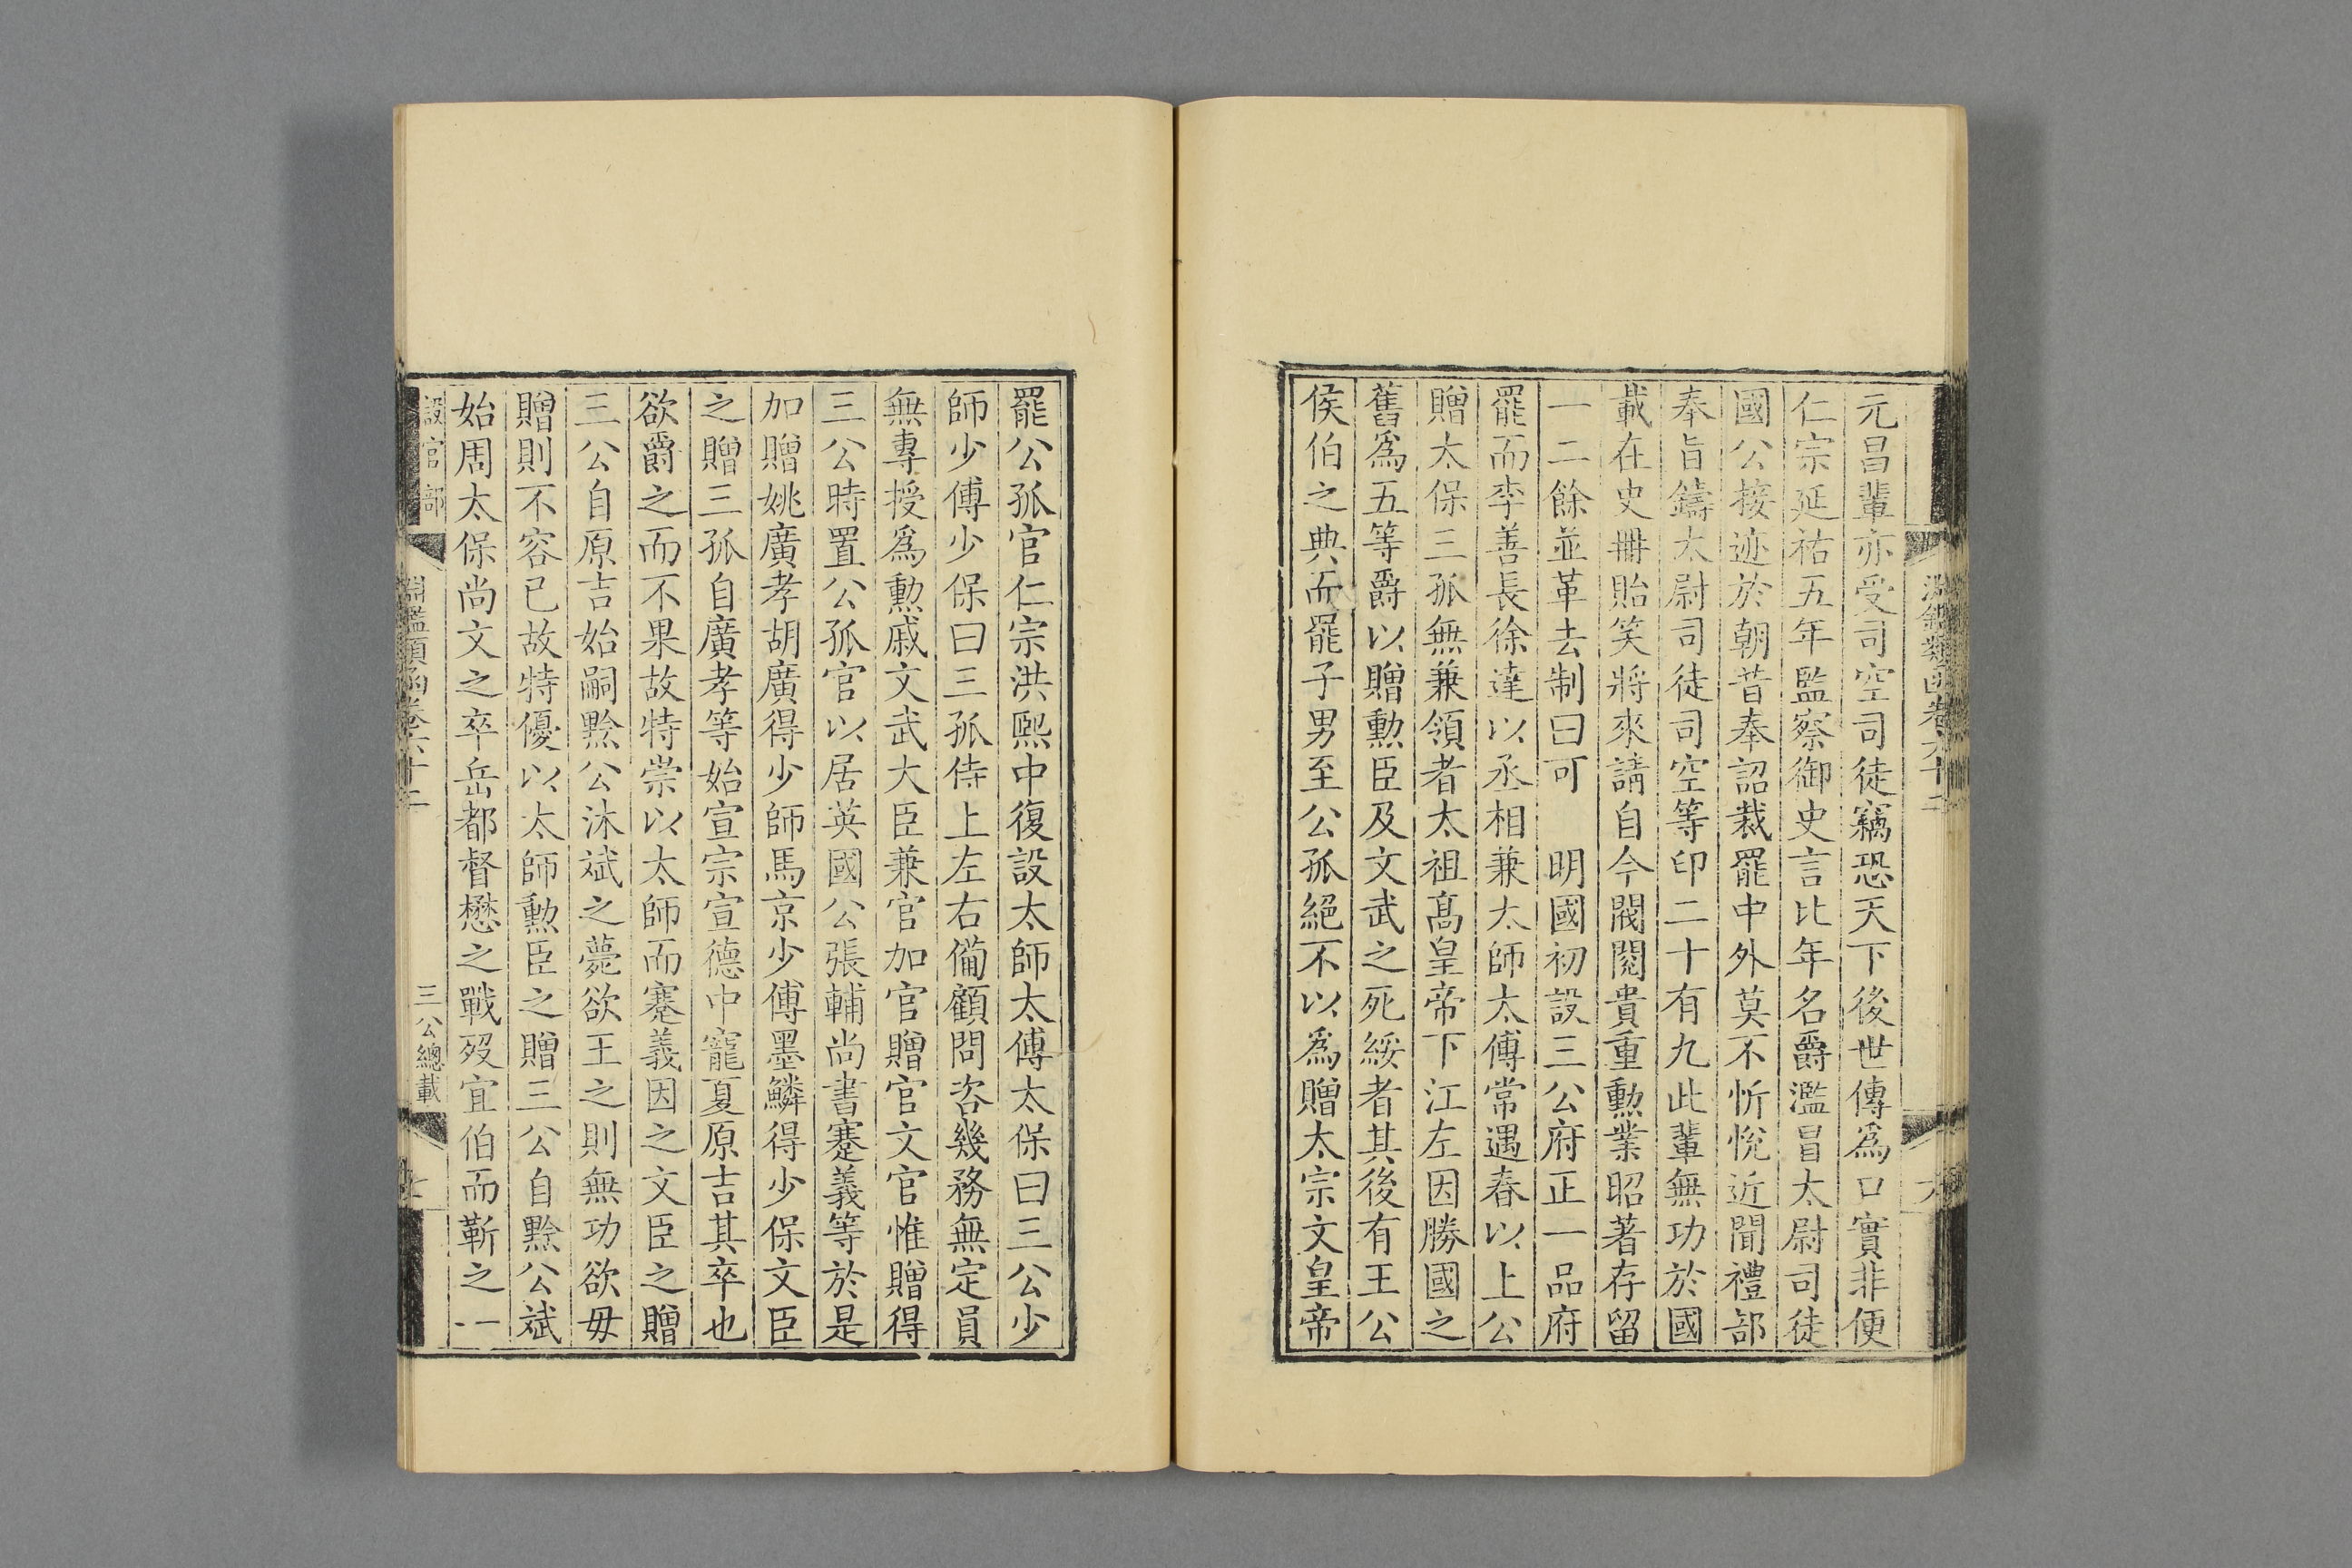 元昌輩亦受司空司徒竊恐天下後世傳爲口實非便
仁宗延祐五年監察御史言比年名爵濫冒太尉司徒
國公接迹於朝昔奉詔裁罷中外莫不忻悅近聞禮部
奉旨鑄太尉司徒司空等印二十有九此輩無功於國
載在史冊貽笑將來請自今閥閱貴重勲業昭著存留
一二餘並革去制曰可　明國初設三公府正一品府
罷而李善長徐達以丞相兼太師太傅常遇春以上公
贈太保三孤無兼領者太祖髙皇帝下江左因勝國之
舊爲五等爵以贈勲臣及文武之死綏者其後有王公
侯伯之典而罷子男至公孤絕不以爲贈太宗文皇帝
罷公孤官仁宗洪熙中復設太師太傅太保曰三公少
師少傅少保曰三孤侍上左右備顧問咨幾務無定員
無專授爲勲戚文武大臣兼官加官贈官文官惟贈得
三公時置公孤官以居英國公張輔尚書蹇義等於是
加贈姚廣孝胡廣得少師馬京少傅墨鱗得少保文臣
之贈三孤自廣孝等始宣宗宣德中寵夏原吉其卒也
欲爵之而不果故特崇以太師而蹇義因之文臣之贈
三公自原吉始嗣黔公沐斌之薨欲王之則無功欲毋
贈則不容已故特優以太師勲臣之贈三公自黔公斌
始周太保尚文之卒岳都督懋之戰歿宜伯而靳之一
設官部
淵鑑類函卷六十二
三公總載